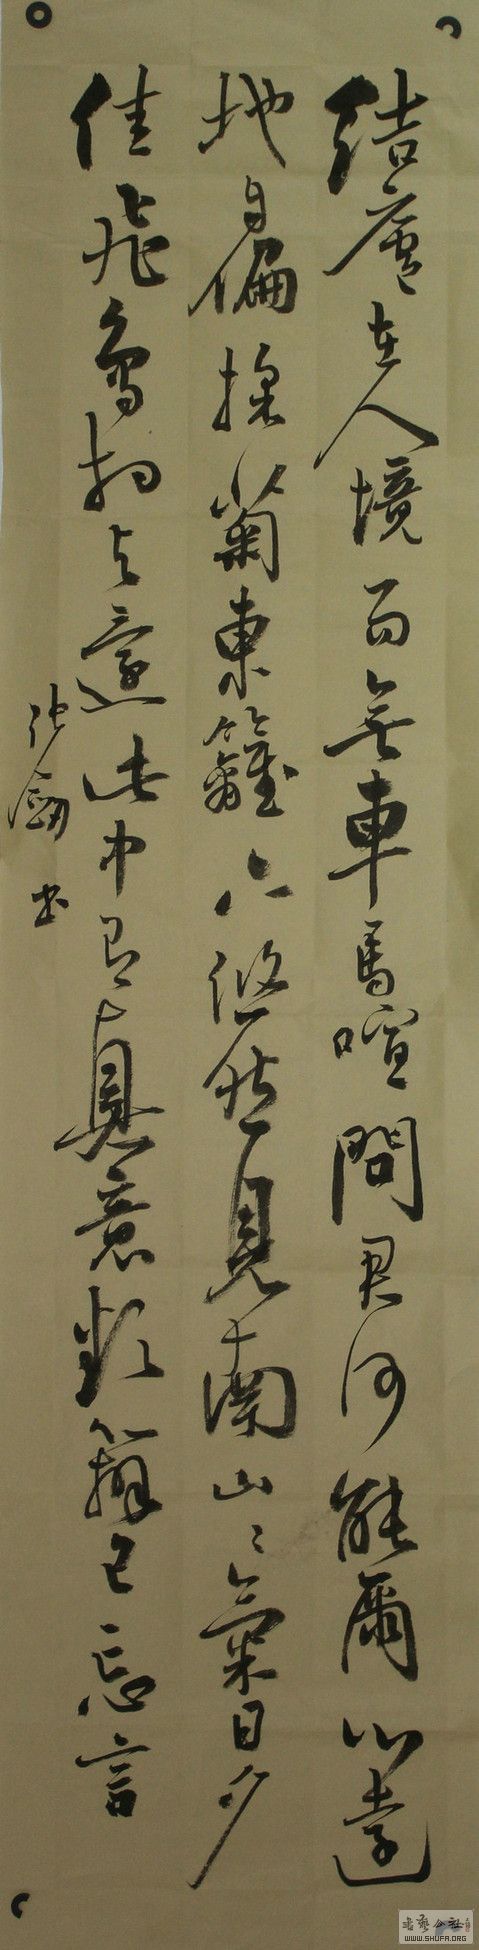 結廬在人境而無車馬喧問君何能爾心遠
地自偏採菊東籬下悠然見南山〻氣日夕
佳飛鳥相與還此中有真意欲辨已忘言
張劍書
書藝公社
WWW.SHUFA.ORG